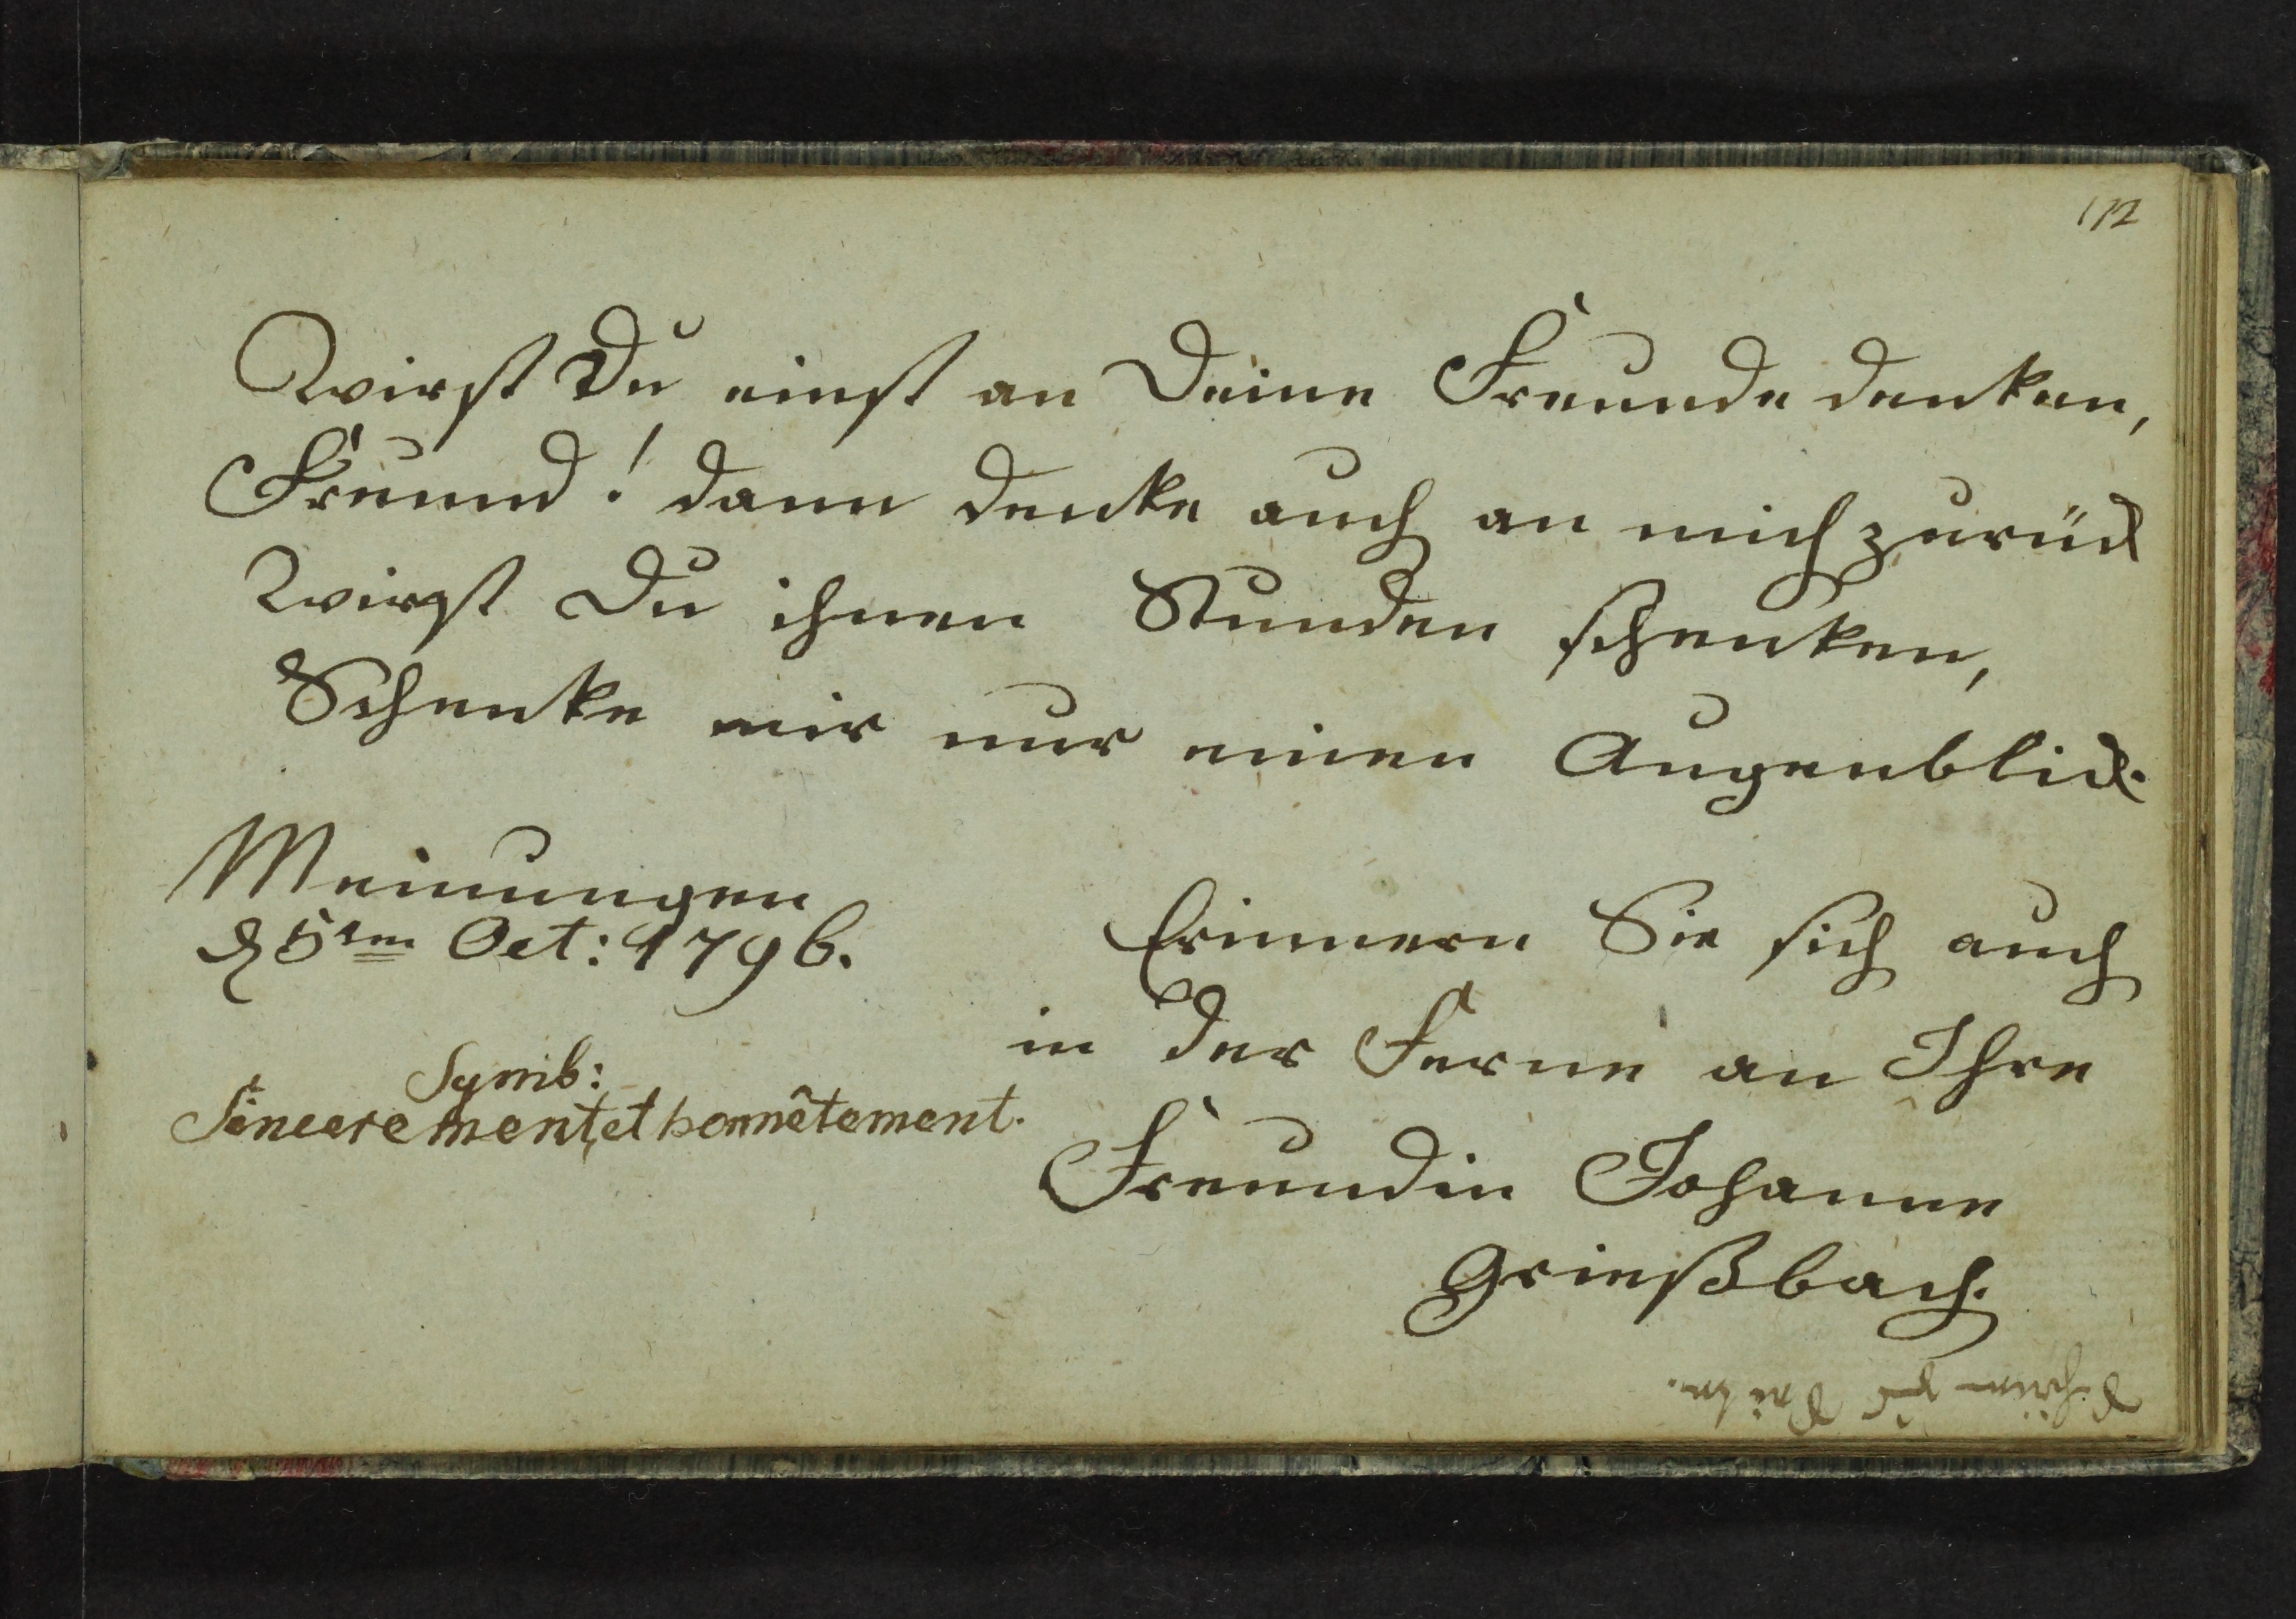 172
Wirst Du einst an Deine Freunde denken,
Freund! dann denke auch an mich zurück
Wirst Du ihnen Stunden schenken,
Schenke mir nur einen Augenblick.
Meinungen
d 5ten Oct: 1796.
Symb:
Sincerement, et honnêtement.
Erinnern Sie sich auch
in der Ferne an Ihre
Freundin Johanne
Grießbach.